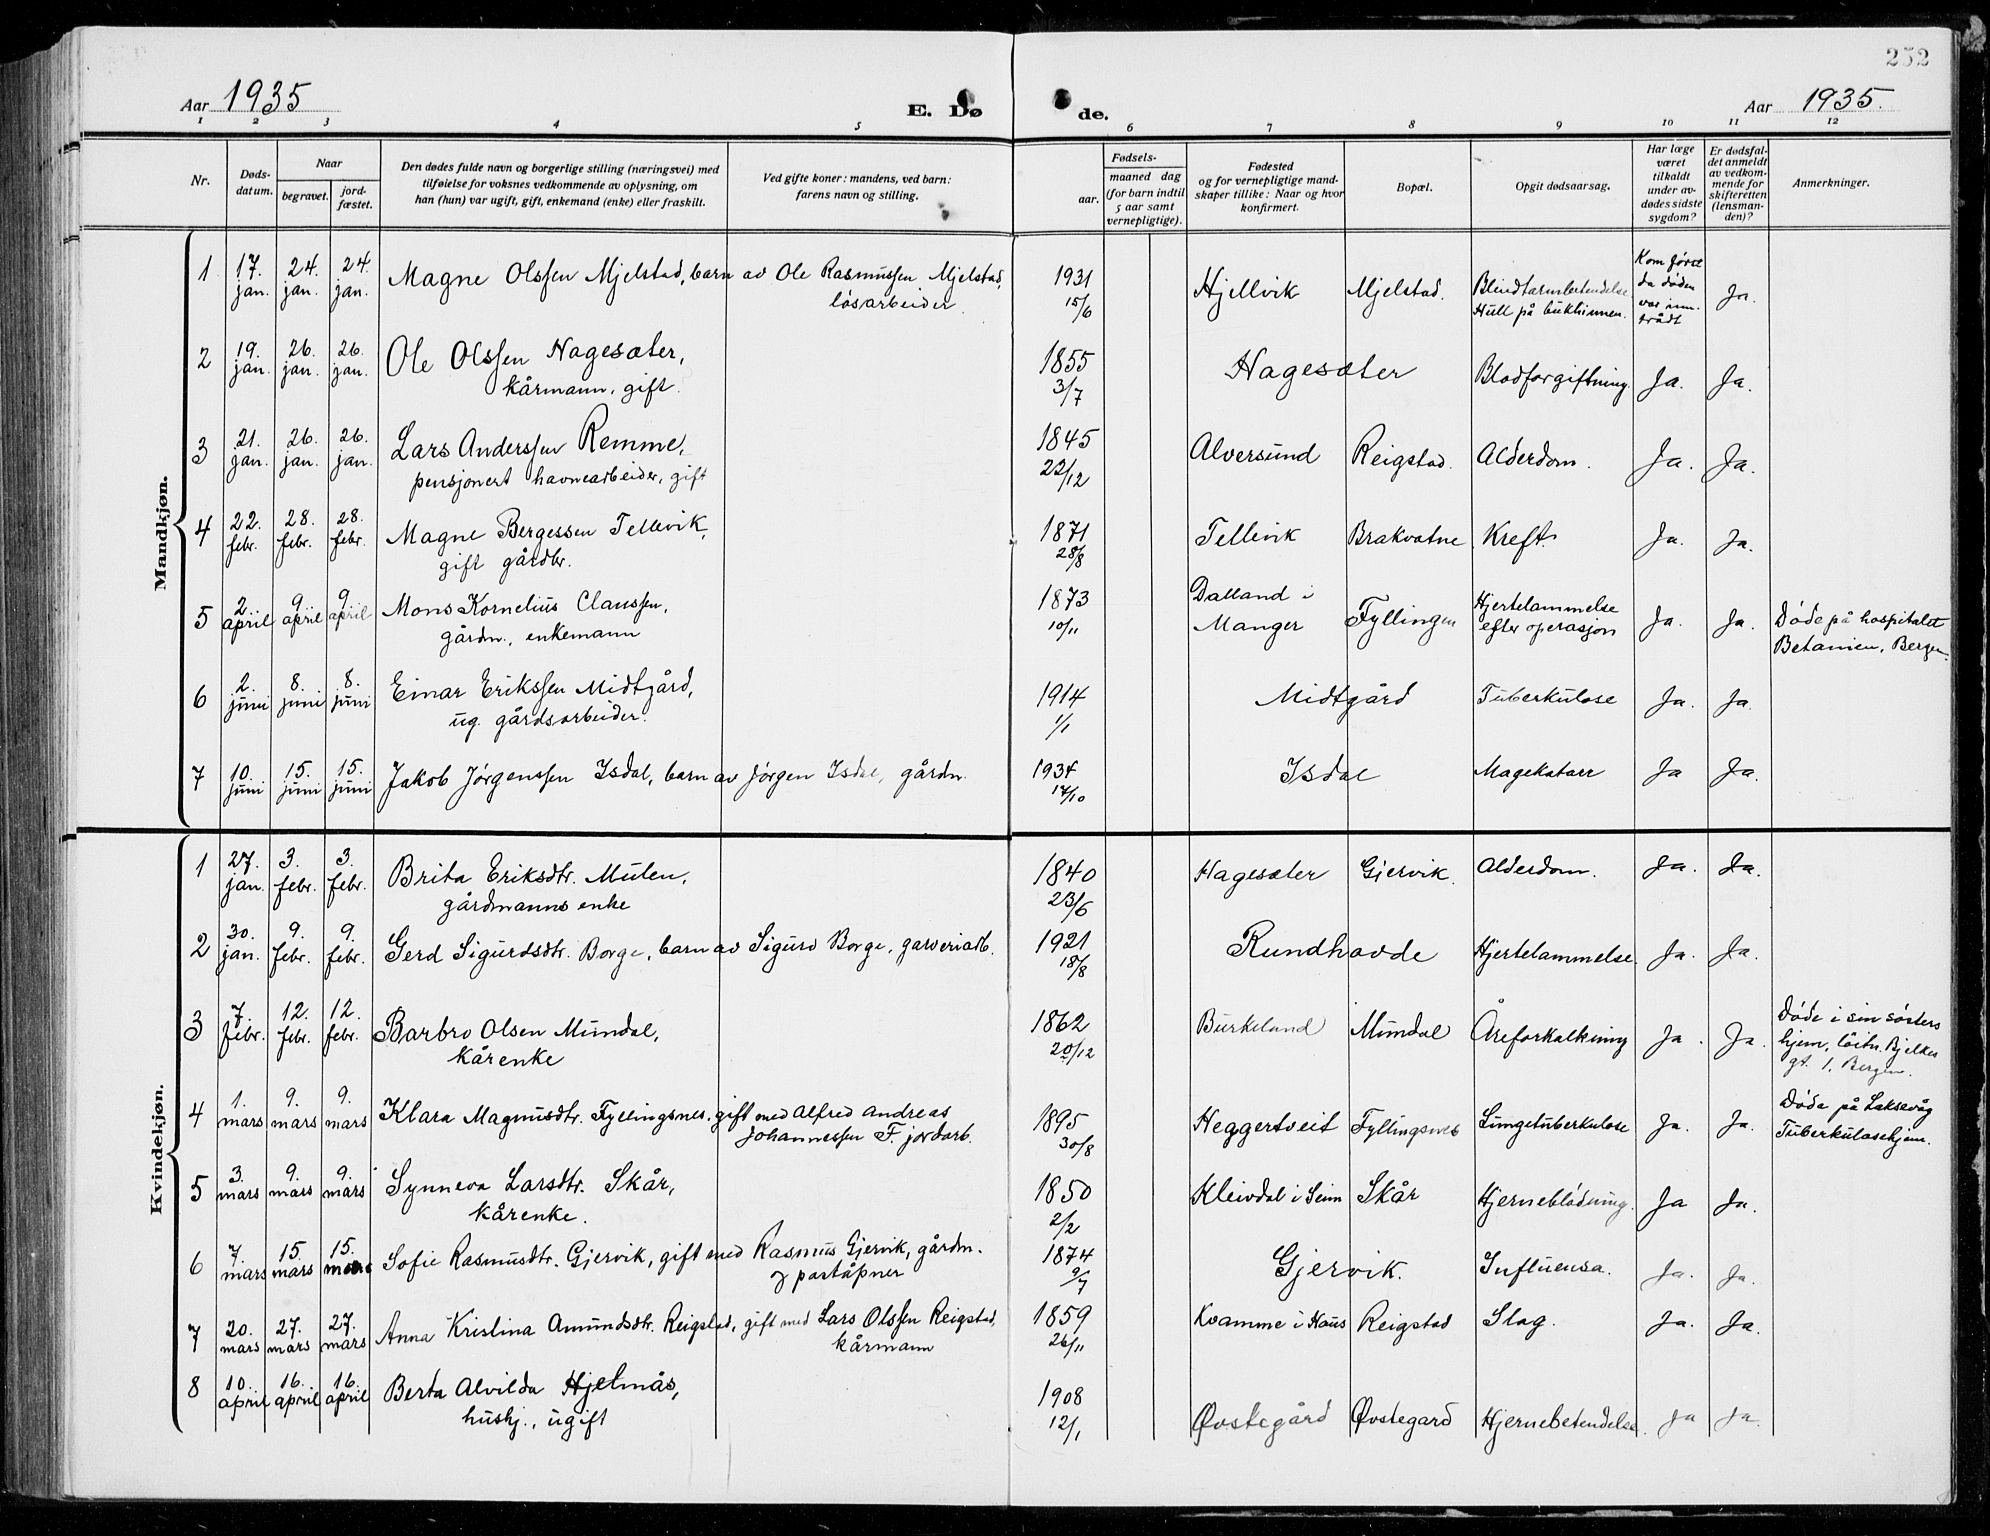 252
Aar 1935
E. Dø
de.
Aar 1935.
1 2 3 4 5 6 7 8 9 10 11 12
Nr.
Døds-
datum.
Naar
begravet.
jord-
fæstet.
Den dødes fulde navn og borgerlige stilling (næringsvei) med
tilføielse for voksnes vedkommende av oplysning, om
han (hun) var ugift, gift, enkemand (enke) eller fraskilt.
Ved gifte koner: mandens, ved barn:
farens navn og stilling.
Fødsels-
aar.
maaned dag
(for barn indtil
5 aar samt
vernepligtige).
Fødested
og for vernepligtige mand-
skaper tillike: Naar og hvor
konfirmert.
Bopæl.
Opgit dødsaarsag.
Har læge
været
tilkaldt
under av-
dødes sidste
sygdom?
Er dødsfal-
det anmeldt
av vedkom-
mende for
skifteretten
(lensman-
den)?
Anmerkninger.
Mandkjøn.
1 17. jan. 24. jan. 24. jan. Magne Olssen Mjelstad, barn av Ole Rasmussen Mjelstad, 1931 Hjellvik Mjelstad. Blindtarmbetendelse Kom først Ja.
løsarbeider. 15/6 Hull på bukhinnen. da døden
var inn-
trådt
2 19. jan. 26. jan. 26. jan. Ole Olssen Hagesæter, 1855 Hagesæter Blodforgiftning. Ja. Ja.
kårmann, gift. 3/7
3 21. jan. 26. jan. 26. jan. Lars Anderssen Remme, 1845 Alversund Reigstad. Alderdom. Ja. Ja.
pensjonert havnearbeider, gift 22/12
4 22. febr. 28. febr. 28. febr. Magne Bergessen Tellevik, 1871 Tellevik Brakvatne Kreft. Ja. Ja.
gift gårdbr. 28/8
5 2. april 9. april 9. april Mons Kornelius Claussen, 1873 Dalland i Fyllingen Hjertelammelse Ja. Ja. Døde på hospitalet
gårdm., enkemann 10/11 Manger efter operasjon Betanien, Bergen.
6 2. juni 8. juni 8. juni Einar Erikssen Midtgård, 1914 Midtgård Tuberkulose Ja. Ja.
ug. gårdsarbeider. 1/1
7 10. juni 15. juni 15. juni Jakob Jørgenssen Isdal, barn av Jørgen Isdal, gårdm. 1934 Isdal Magekatarr Ja Ja.
17/10
Kvindekjøn.
1 27. jan. 3. febr. 3. febr. Brita Eriksdtr. Mulen, 1840 Hagesæter Gjervik. Alderdom. Ja. Ja.
gårdmanns enke 23/6
2 30. jan. 9. febr. 9. febr. Gerd Sigurdsdtr. Borge, barn av Sigurd Borge, garveriarb. 1921 Rundhovde Hjertelammelse. Ja. Ja.
18/8
3 7. febr. 12. febr. 12. febr. Barbro Olsen Mundal, 1862 Burkeland Mundal Åreforkalkning Ja. Ja. Døde i sin søsters
kårenke 20/12 hjem, löitn. Bjelkes
gt. 1, Bergen.
4 1. mars 9. mars 9. mars Klara Magnusdtr. Fyllingsnes, gift med Alfred Andreas 1895 Heggertveit Fyllingsnes Lungetuberkulose Ja. Ja. Døde på Laksevåg
Johannessen F. jordarb. 30/8 Tuberkulosehjem.
5 3. mars 9. mars 9. mars Synneva Larsdtr. Skår, 1850 Kleivdal i Seim Skår Hjerneblødning. Ja Ja.
kårenke. 2/2
6 7. mars 15. mars 15. mars Sofie Rasmusdtr. Gjervik, gift med Rasmus Gjervik, gårdm. 1874 Gjervik. Influensa. Ja. Ja.
poståpner 9/7
7 20. mars 27. mars 27. mars Anna Kristina Amundsdtr. Reigstad, gift med Lars Olssen Reigstad, 1859 Kvamme i Haus Reigstad Slag. Ja. Ja.
kårmann 26/11
8 10. april 16. april 16. april Berta Alvilda Hjelmås, 1908 Øvstegård Øvstegard Hjernebetendelse. Ja Ja.
hushj., ugift 12/1